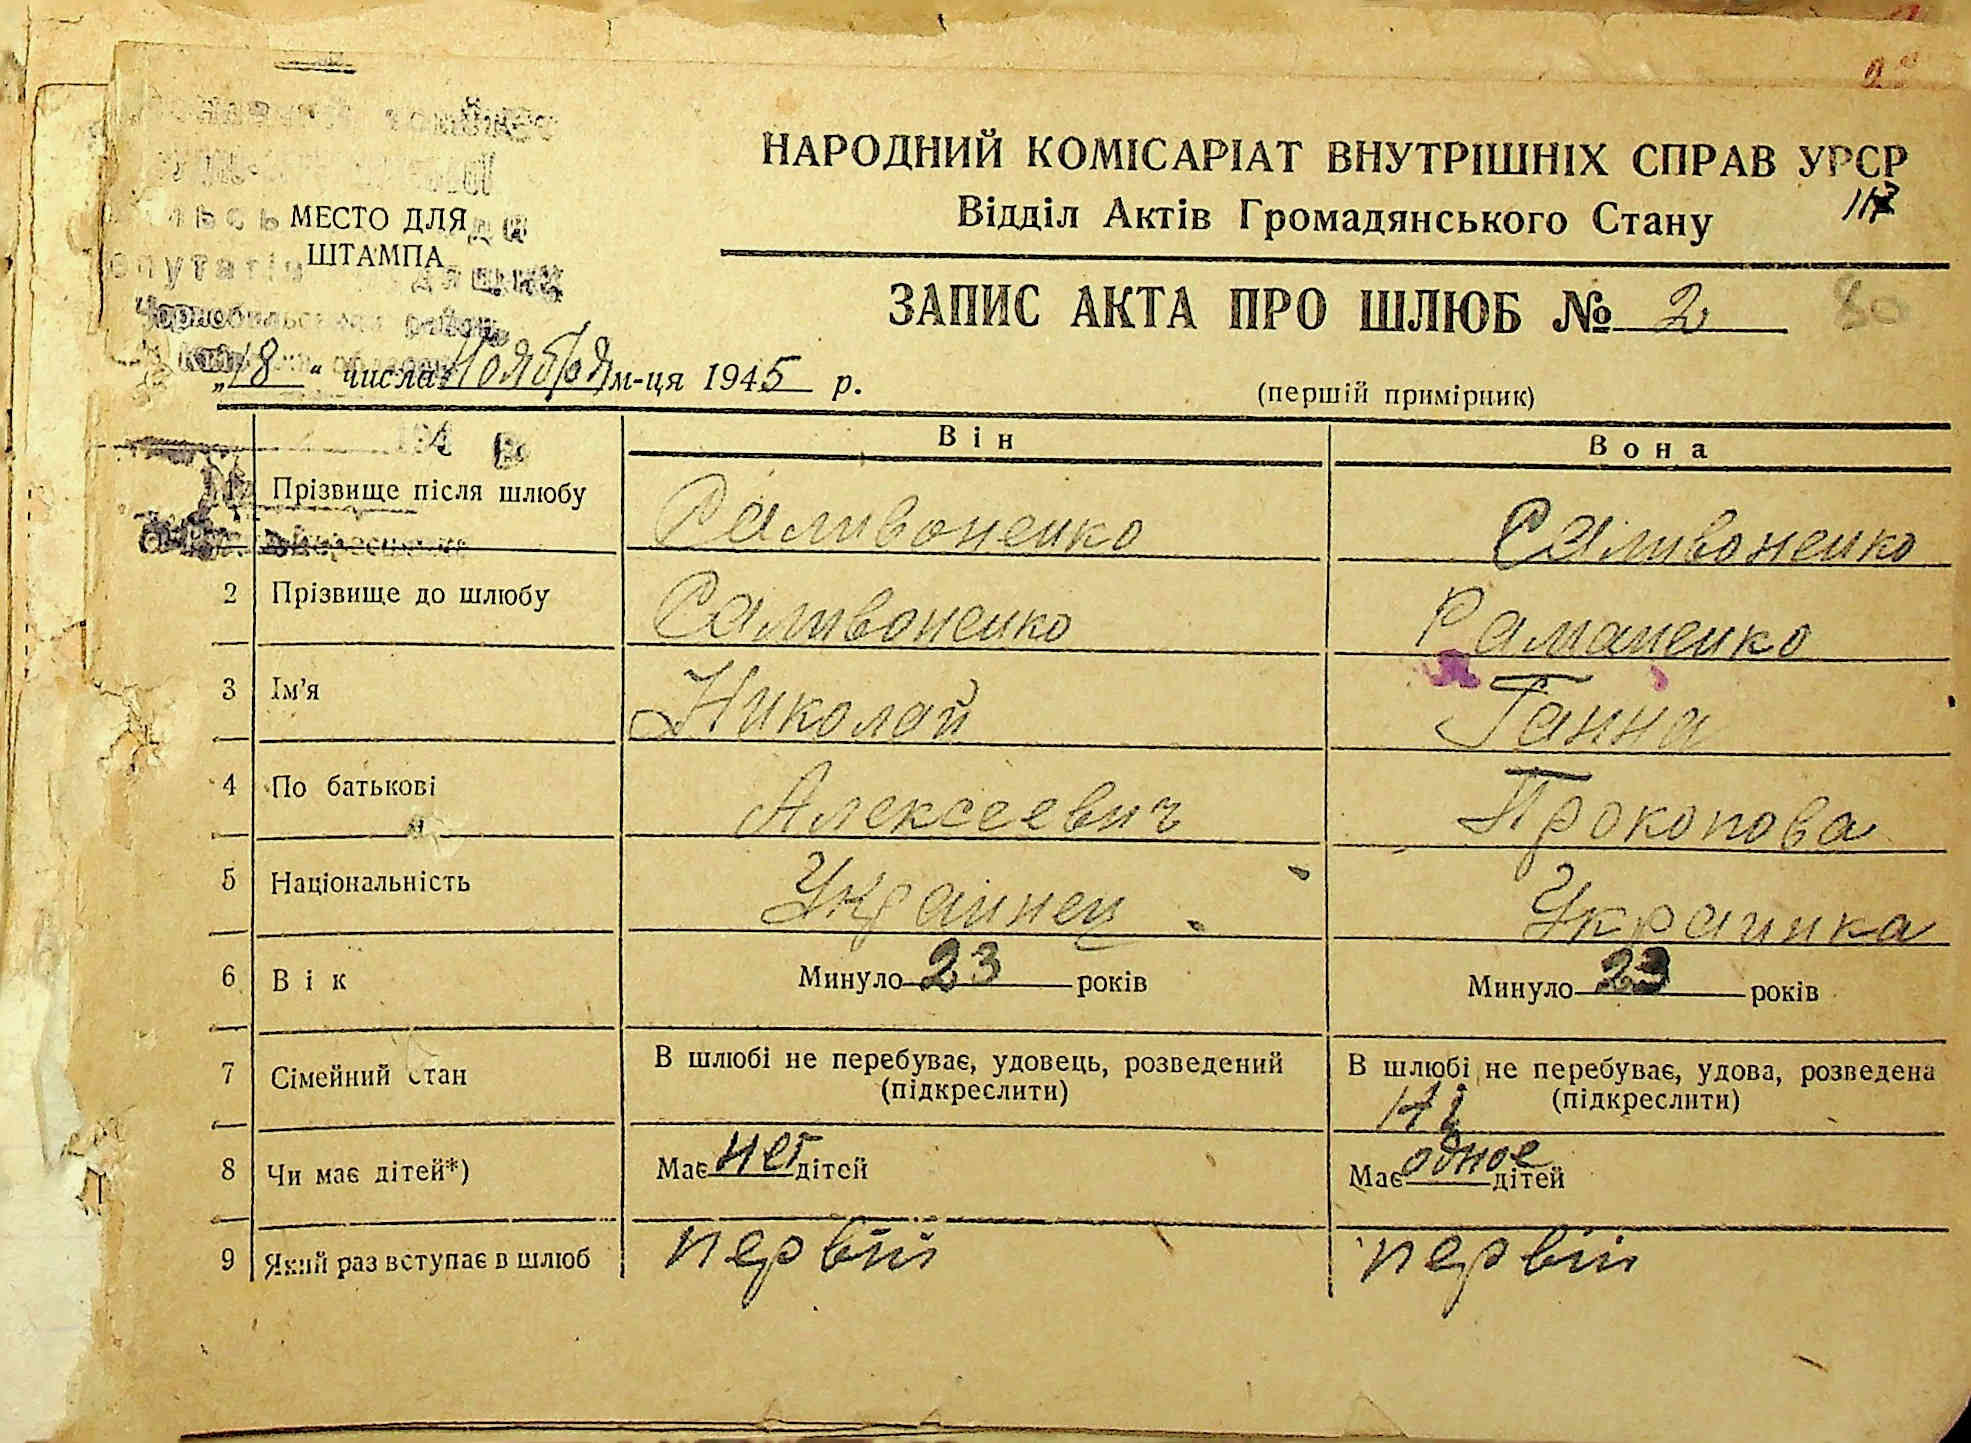 НАРОДНИЙ КОМІСАРІАТ ВНУТРІШНІХ СПРАВ УРСР
Відділ Актів Громадянського Стану
МЕСТО ДЛЯ
ШТАМПА
ЗАПИС АКТА ПРО ШЛЮБ № 2 80
„18“ числа Ноября м-ця 1945 р.
(перший примірник)
Він Вона
Прізвище після шлюбу Саливоненко Саливоненко
2 Прізвище до шлюбу Саливоненко Раманенко
3 Ім'я Николай Ганна
4 По батькові Алексеевич Прокопова
5 Національність Украинец Украинка
6 Вік Минуло 23 років Минуло 23 років
7 Сімейний стан В шлюбі не перебуває, удовець, розведений (підкреслити) В шлюбі не перебуває, удова, розведена (підкреслити)
Ні
8 Чи має дітей*) Має нет дітей Має одное дітей
9 Який раз вступає в шлюб первий первий